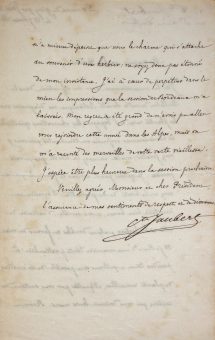 n'a mieux dépeint que vous le charme qui s'attache
au souvenir d'un herbier, ne soyez donc pas étonné
de mon insistance. J'ai à cœur de perpétuer dans le
mien les impressions que la session de Bordeaux m'a
laissées. Mon regret a été grand de n'avoir pu aller
vous rejoindre cette année dans les Alpes, mais on
m'a raconté des merveilles de votre verte vieillesse.
J'espère être plus heureux dans la session prochaine.
Veuillez agréer, Monsieur et cher Président
l'assurance de mes sentiments de respect et
Cte Jaubert